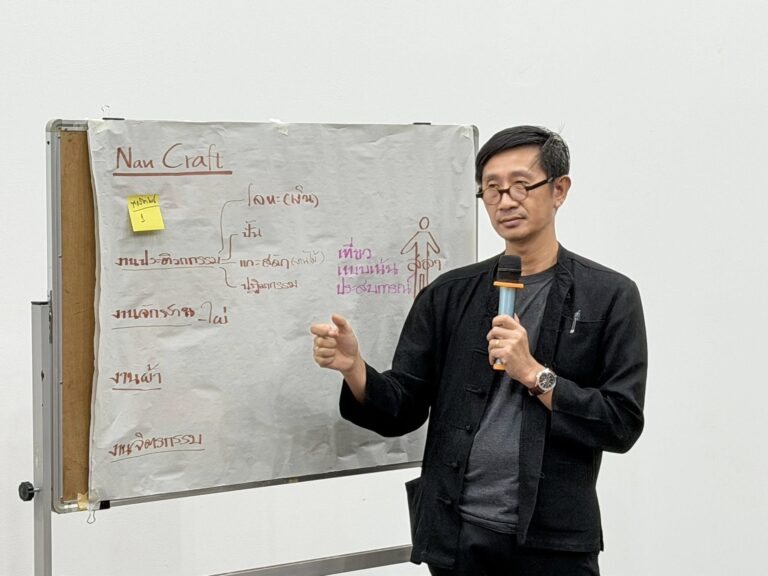 Nan Craft
1
โลหะ(เงิน)
ปั้น
งานประติมากรรม
แกะสลัก(งานไม้)
งานจักสาน-ไผ่
งานผ้า
งานจิตรกรรม
เที่ยว
แบบเน้น
ประสบการณ์
สล่า